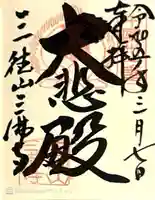 令和五年三月七日
奉拝
大悲殿
三徳山三佛寺